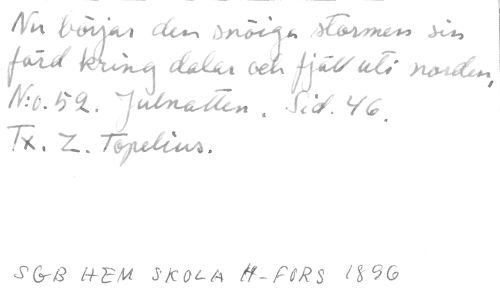 Nu börjar den snöiga stormen sin
färd kring dalar och fjäll uti norden,
N:o. 52. Julnatten. Sid. 46.
Tx. Z. Topelius.
SGB HEM SKOLA H-FORS 1896